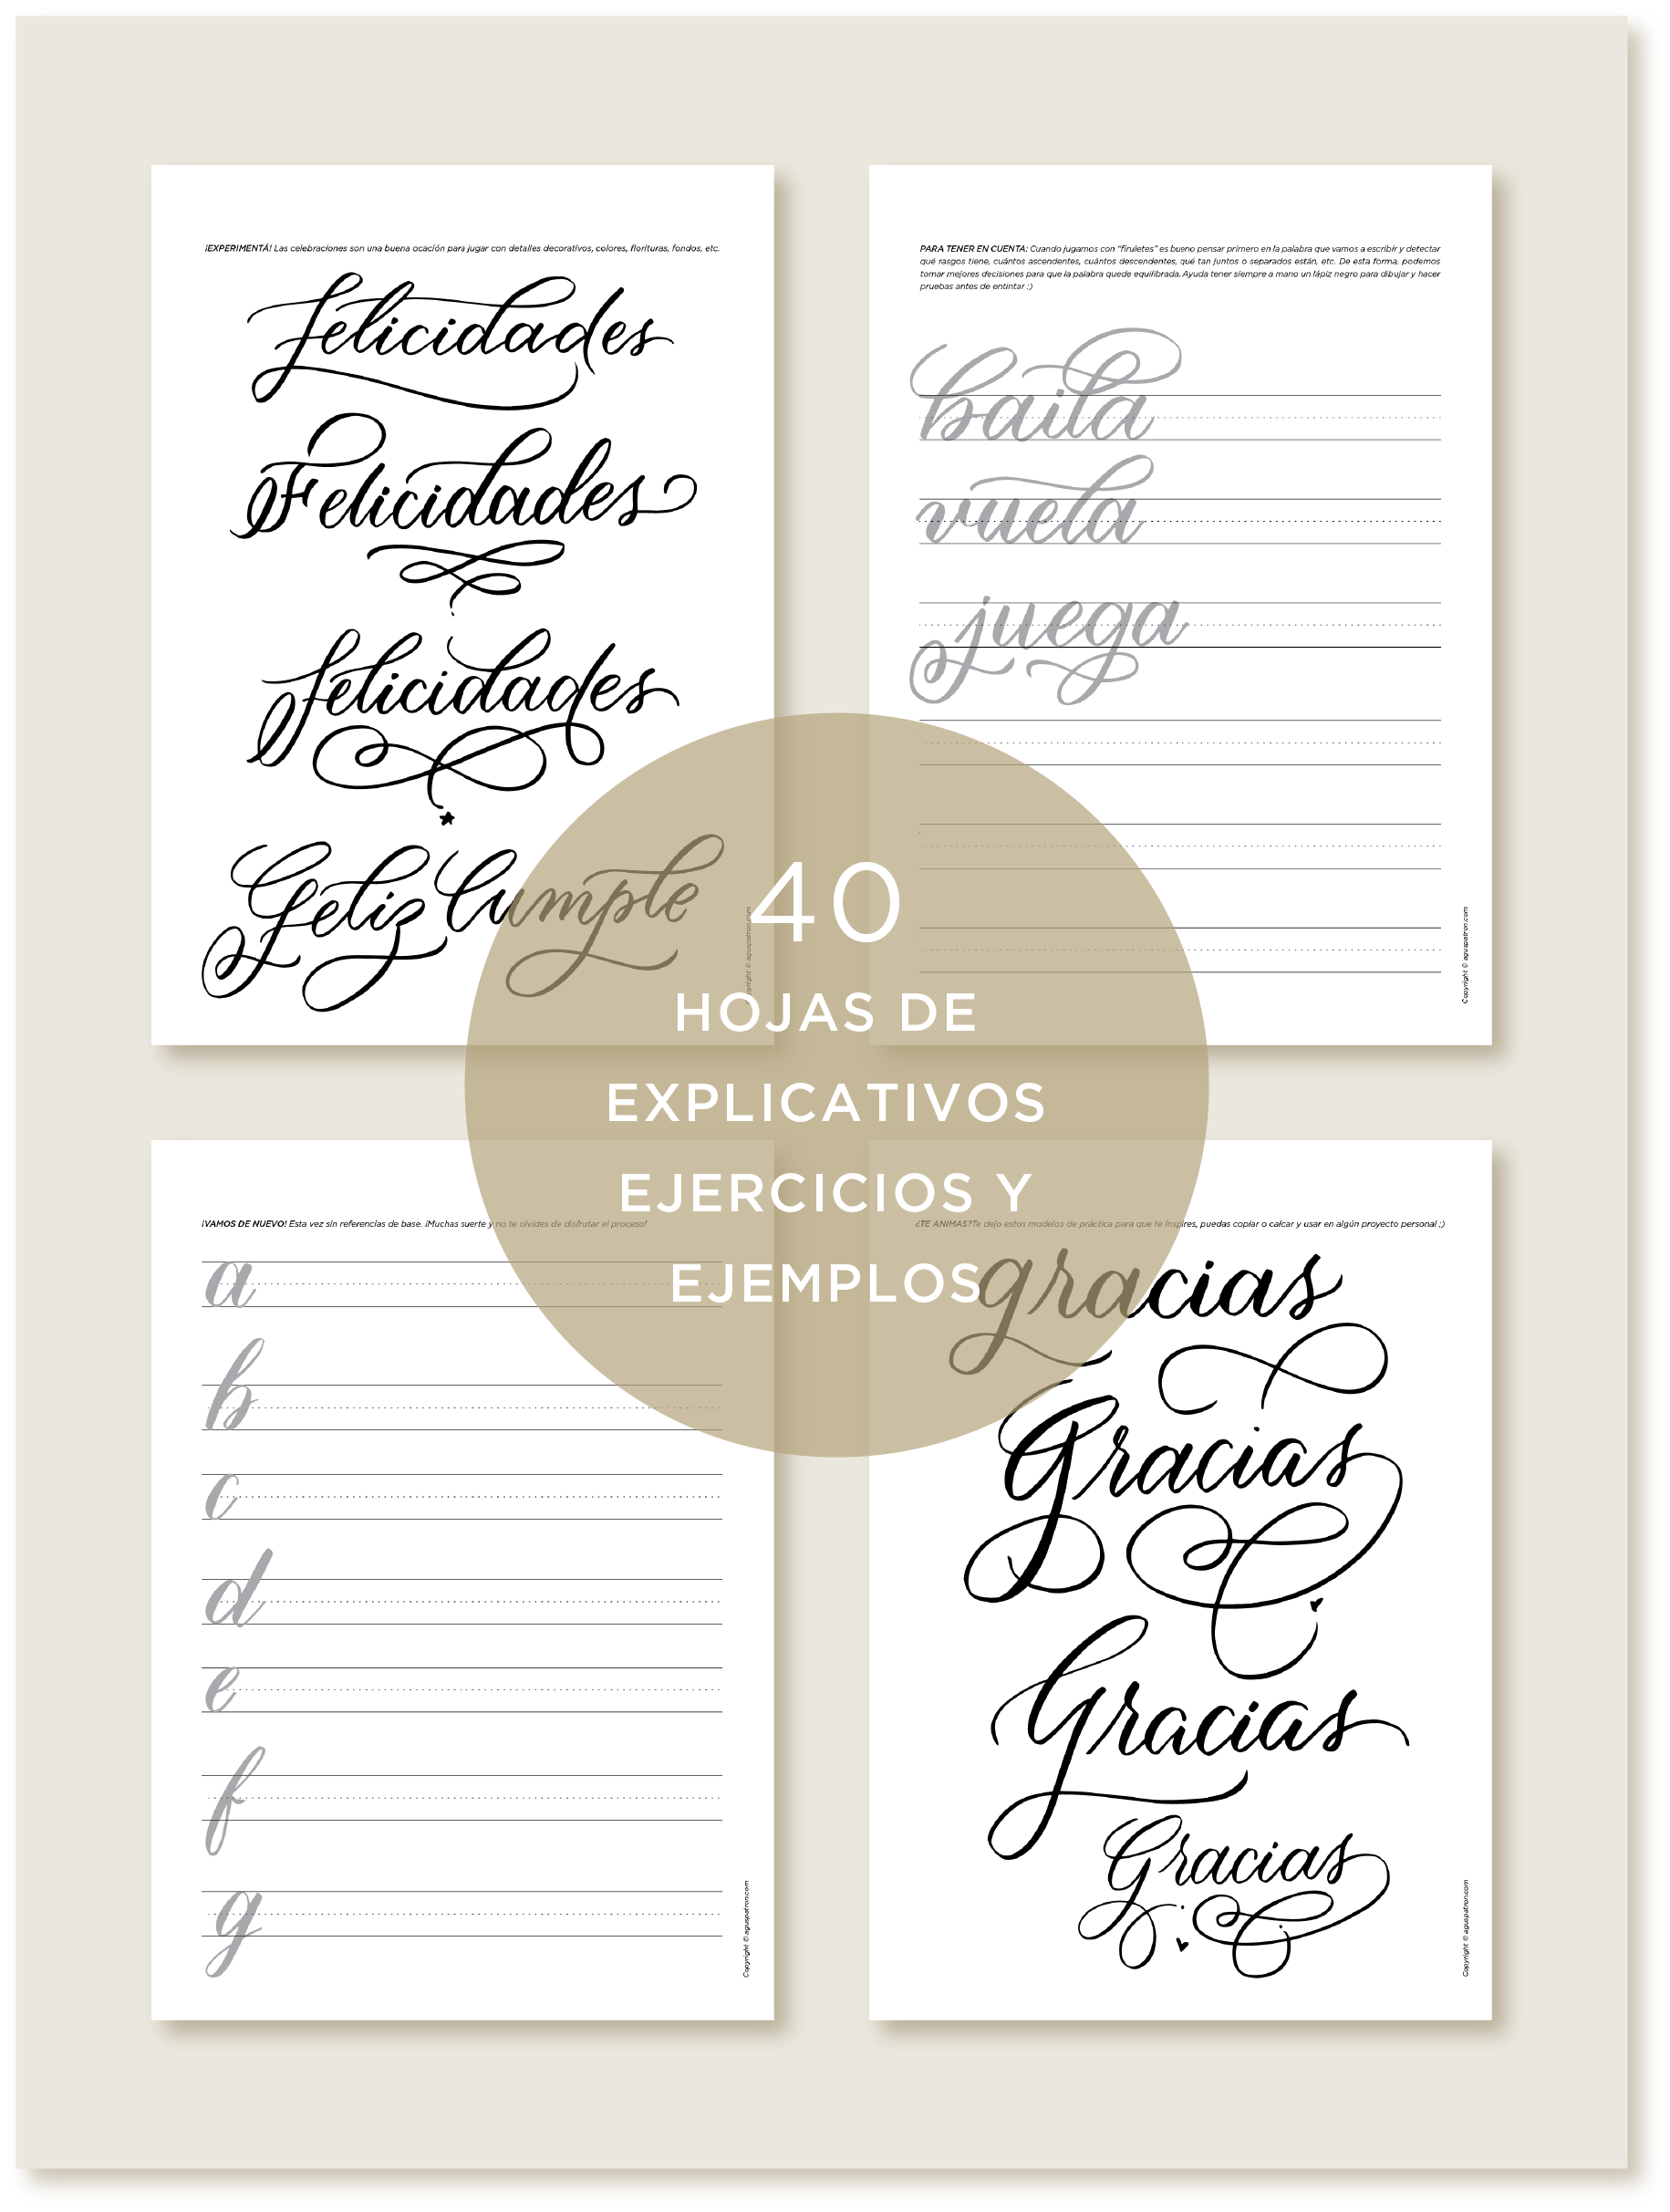 ¡EXPERIMENTÁ! Las celebraciones son una buena ocación para jugar con detalles decorativos, colores, florituras, fondos, etc.
felicidades
Felicidades
felicidades
Feliz Cumple
Copyright © aguspatron.com
PARA TENER EN CUENTA: Cuando jugamos con “firuletes” es bueno pensar primero en la palabra que vamos a escribir y detectar
qué rasgos tiene, cuántos ascendentes, cuántos descendentes, qué tan juntos o separados están, etc. De esta forma, podemos
tomar mejores decisiones para que la palabra quede equilibrada. Ayuda tener siempre a mano un lápiz negro para dibujar y hacer
pruebas antes de entintar :)
baila
vuela
juega
Copyright © aguspatron.com
40
HOJAS DE
EXPLICATIVOS
EJERCICIOS Y
EJEMPLOS
¡VAMOS DE NUEVO! Esta vez sin referencias de base. ¡Muchas suerte y no te olvides de disfrutar el proceso!
a
b
c
d
e
f
g
Copyright © aguspatron.com
¿TE ANIMAS?Te dejo estos modelos de práctica para que te inspires, puedas copiar o calcar y usar en algún proyecto personal ;)
gracias
Gracias
Gracias
Gracias
Copyright © aguspatron.com